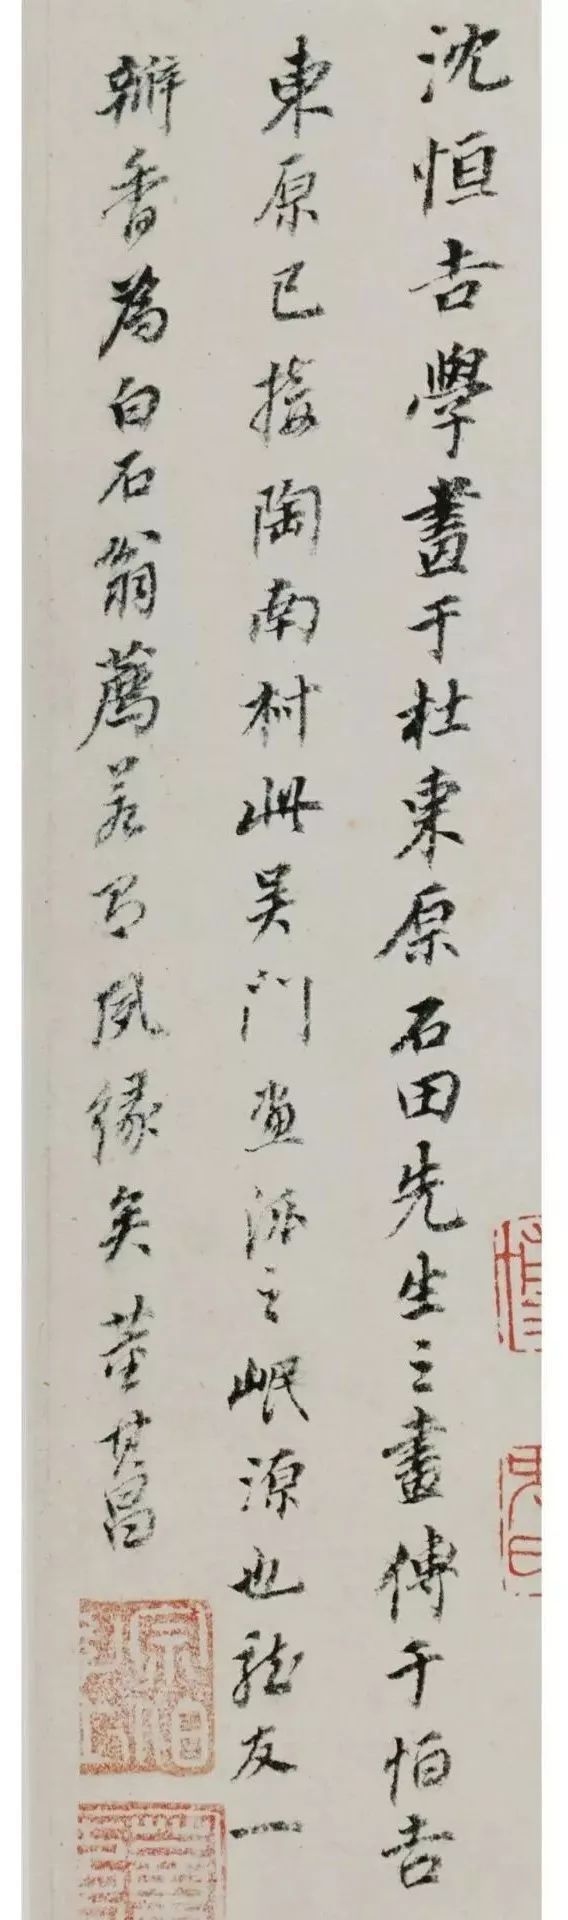 沈恒吉學畫于杜東原石田先生之畫傳于恒吉
東原已接陶南村此吳門畫派之岷源也龍友一
瓣香為白石翁薦若有夙緣矣董其昌